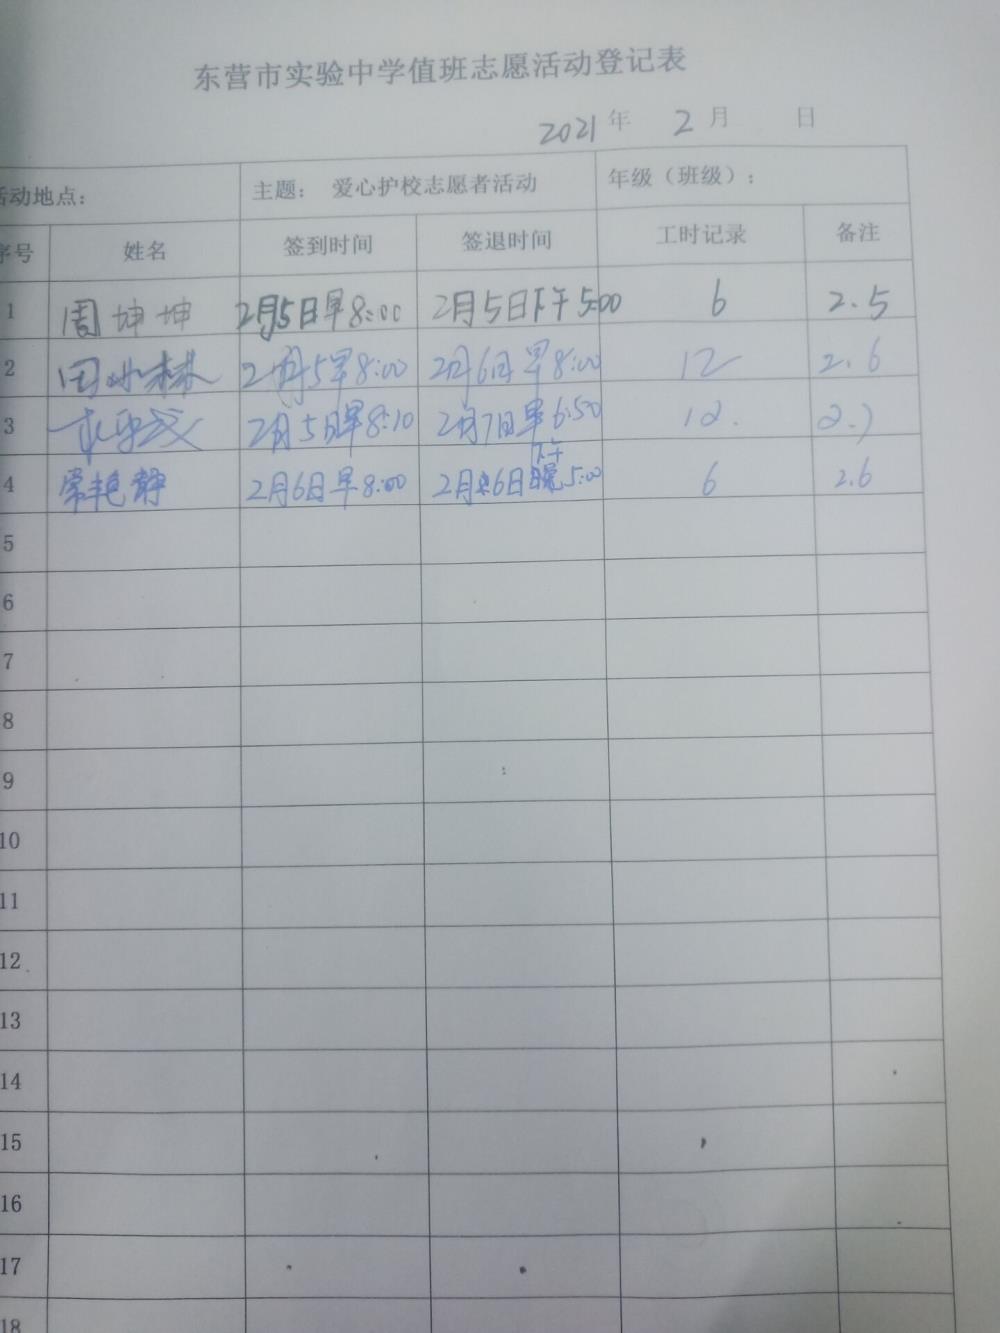 东营市实验中学值班志愿活动登记表
2021年 2月 日
活动地点: 主题: 爱心护校志愿者活动 年级（班级）:
序号 姓名 签到时间 签退时间 工时记录 备注
1 周坤坤 2月5日早8:00 2月5日下午5:00 6 2.5
2 2月5早8:00 2月6日早8:00 12 2.6
3 2月5日早8:10 2月7日早6:50 12. 2.7
4 常艳静 2月6日早8:00 2月6日下午5:00 6 2.6
5
6
7
8
9
10
11
12
13
14
15
16
17
18